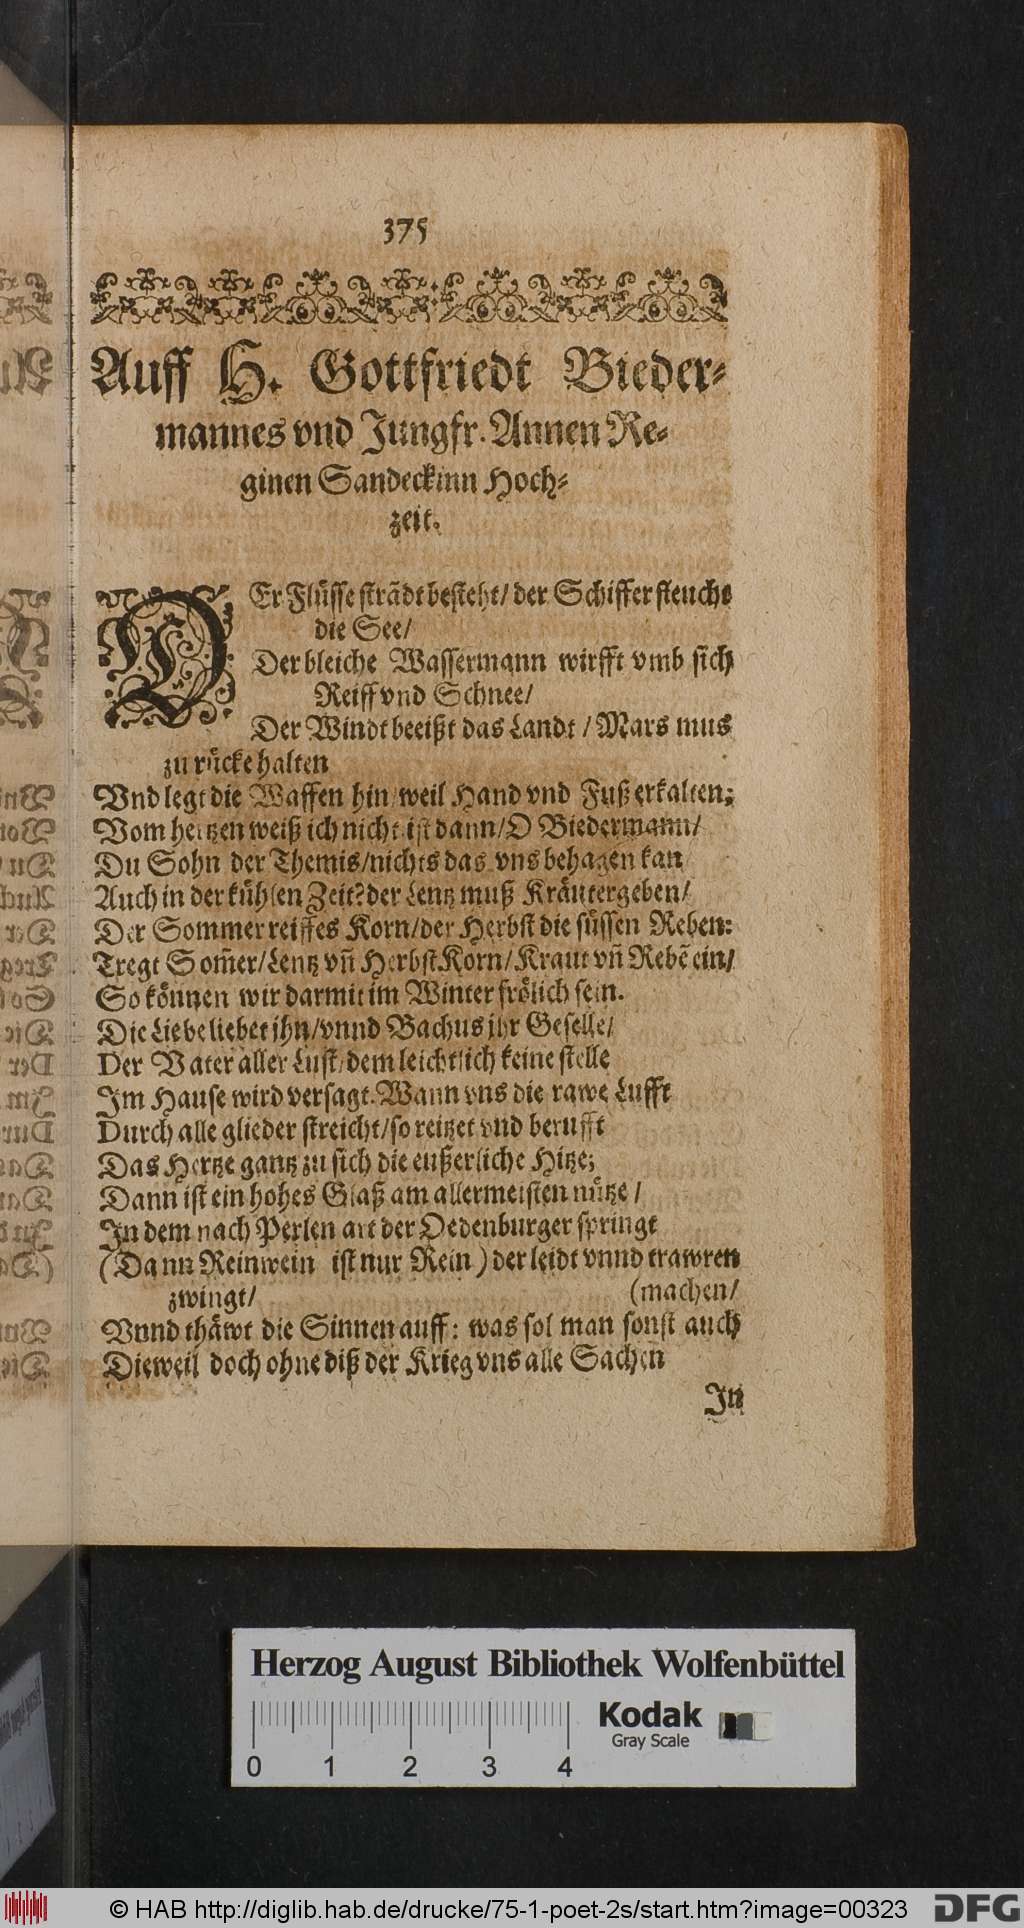 375
Auff H. Gottfriedt Bieder-
mannes vnd Jungfr. Annen Re-
ginen Sandeckinn Hoch-
zeit.
DEr Flüsse strãdt besteht/ der Schiffer fleuchs
die See/
Der bleiche Wassermann wirfft vmb sich
Reiff vnd Schnee/
Der Windt beeißt das Landt / Mars mus
zu rücke halten
Vnd legt die Waffen hin/ weil Hand vnd Fuß erkalten;
Vom hertzen weiß ich nicht ist dann/ O Biedermann/
Du Sohn der Themis/ nichts das vns behagen kan
Auch in der kühlen Zeit? der Lentz muß Kräuter geben/
Der Sommer reiffes Korn/ der Herbst die süssen Reben:
Tregt Som̃er/ Lentz vñ Herbst Korn/ Kraut vñ Rebẽ ein/
So können wir darmit im Winter frölich sein.
Die Liebe liebet ihn/ vnnd Bachus ihr Geselle/
Der Vater aller Lust/ dem leichtlich keine stelle
Im Hause wird versagt. Wann vns die rawe Lufft
Durch alle glieder streicht/ so reitzet vnd berufft
Das Hertze gantz zu sich die eußerliche Hitze;
Dann ist ein hohes Glaß am allermeisten nütze /
In dem nach Perlen art der Oedenburger springt
(Dann Reinwein ist nur Rein) der leidt vnnd trawren
zwingt/ (machen/
Vnnd thäwt die Sinnen auff: was sol man sonst auch
Dieweil doch ohne diß der Krieg vns alle Sachen
In
Herzog August Bibliothek Wolfenbüttel
Kodak
Gray Scale
0 1 2 3 4
© HAB http://diglib.hab.de/drucke/75-1-poet-2s/start.htm?image=00323
DFG